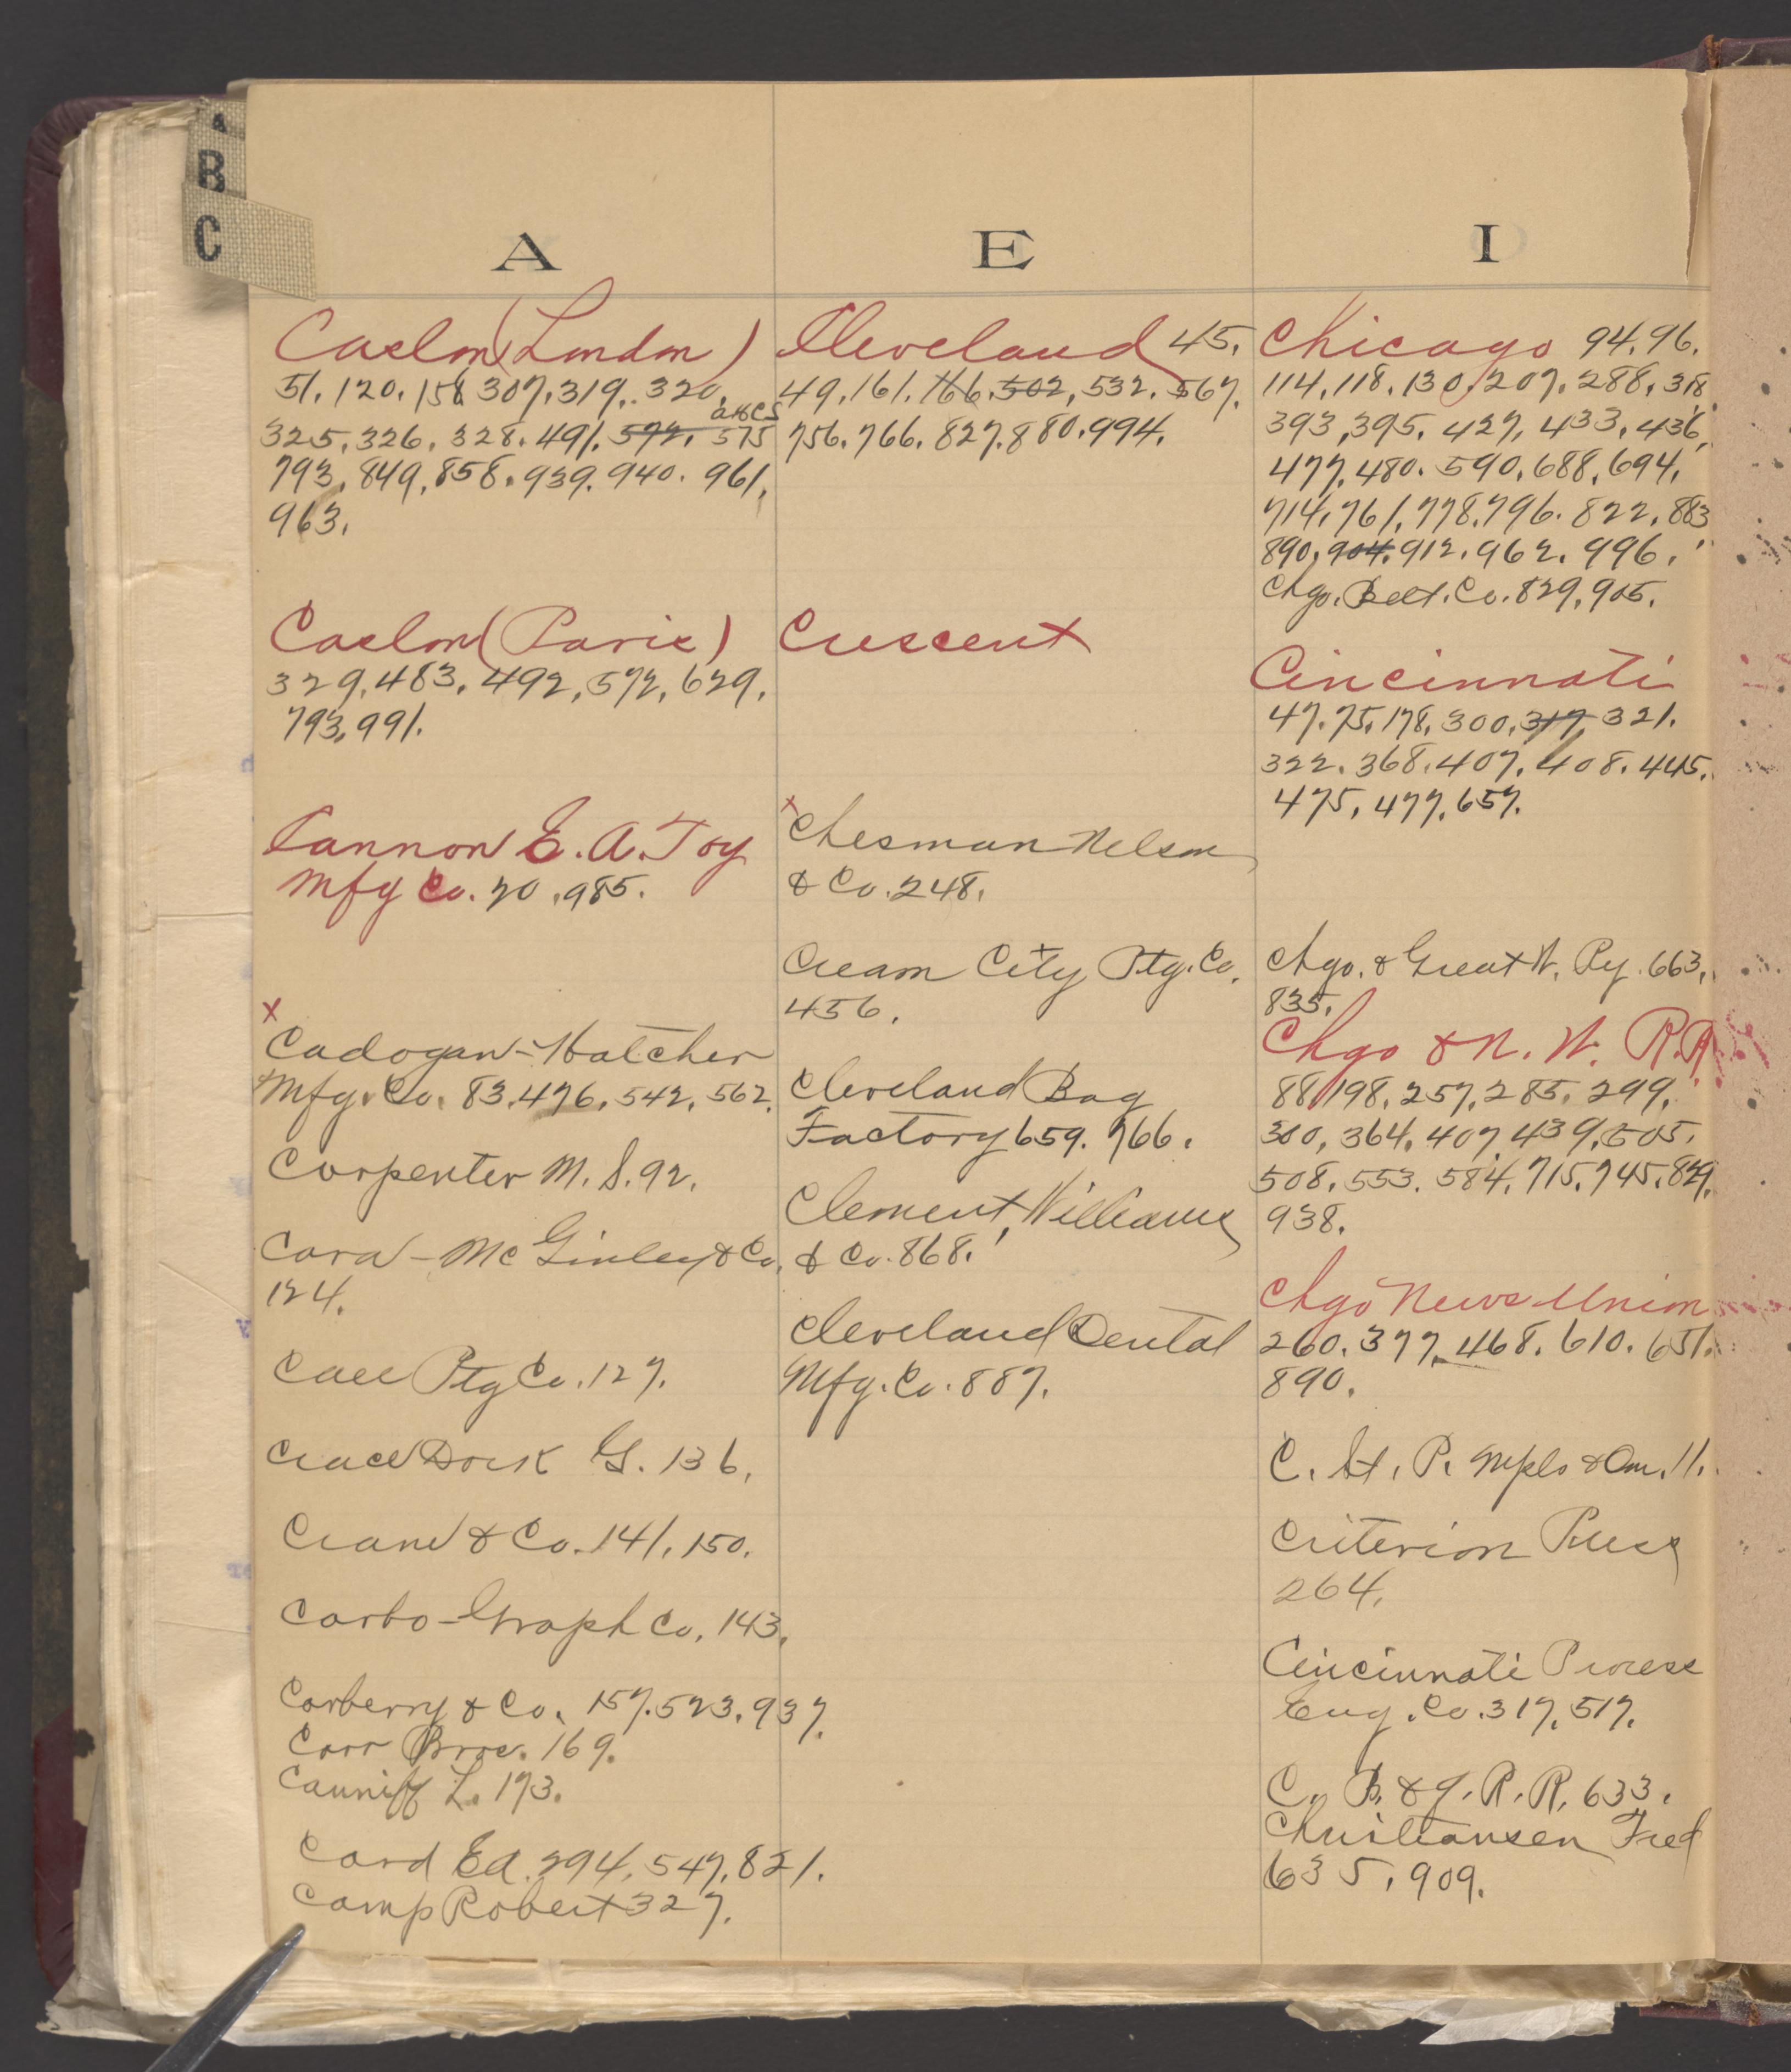 A
B
C
A
Caslon (London)
51, 120, 158, 307, 319, 320,
axcs
325, 326, 328, 491, 572, 575
793, 849, 858, 939, 940, 961,
963.
Caslon (Paris)
329, 483, 492, 572, 629,
793, 991.
Cannon E. A. Toy
Mfg Co. 70, 985.
x
Cadogan-Hatcher
Mfg. Co. 83, 476, 542, 562.
Carpenter M. S. 92.
Cara - McGinley & Co,
124.
Call Ptg Co. 127.
G. 136.
Crane & Co. 141, 150.
Carbo-Graph Co, 143,
Carberry & Co, 157, 523, 937.
Carr Bros. 169.
Cauniff L. 173.
Card Ed. 294, 547, 821.
Camp Robert 327.
E
Cleveland 45,
49, 161, 166, 502, 532, 567,
756, 766, 827, 880, 994,
Crescent
x
Chesman Nelson
& Co. 248,
x
Cream City Ptg. Co,
456,
Cleveland Bag
Factory 659, 766.
Clement, Williams
& Co. 868.
Cleveland Dental
Mfg. Co. 887.
I
Chicago 94, 96,
114, 118, 130, 207, 288, 318,
393, 395, 427, 433, 436,
477, 480, 590, 688, 694,
714, 761, 778, 796, 822, 883
890, 904, 912, 962, 996,
Chgo. Belt. Co. 829, 905.
Cincinnati
47, 75, 178, 300, 317, 321,
322, 368, 407, 408, 445,
475, 477, 657.
Chgo. & Great W. Ry. 663,
835.
Chgo & N. W. R.R.
88, 198, 257, 285, 299,
300, 364, 407, 439, 505,
508, 553, 584, 715, 745, 829,
938.
Chgo News Union
260, 377, 468, 610, 651.
890.
C. St. P. Mpls & Om. 11.
Criterion Press
264,
Cincinnati Process
Eng. Co. 317, 517.
C. B. & Q. R. R. 633.
Christiansen Fred
635, 909.